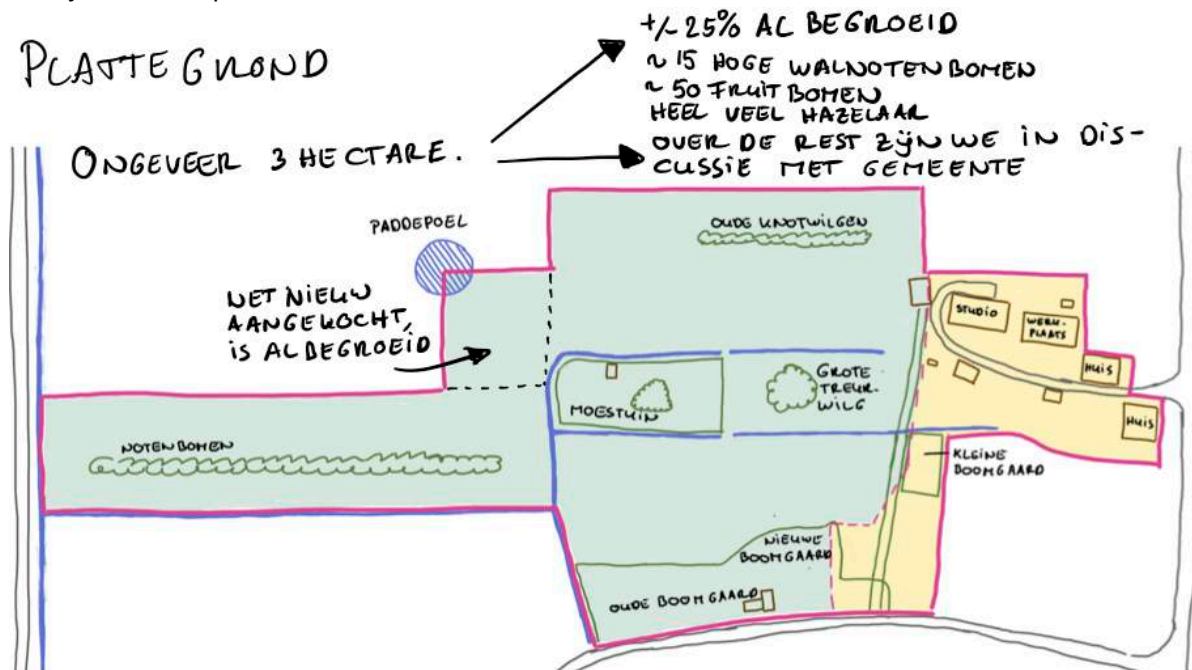 PLATTEGROND
ONGEVEER 3 HECTARE.
+/- 25% AL BEGROEID
~ 15 HOGE WALNOTENBOMEN
~ 50 FRUITBOMEN
HEEL VEEL HAZELAAR
OVER DE REST ZIJN WE IN DIS-
CUSSIE MET GEMEENTE
PADDEPOEL
OUDE KNOTWILGEN
NET NIEUW
AANGEKOCHT,
IS AL BEGROEID
STUDIO
WERK-
PLAATS
HUIS
HUIS
MOESTUIN
GROTE
TREUR-
WILG
NOTENBOMEN
KLEINE
BOOMGAARD
NIEUWE
BOOMGAARD
OUDE BOOMGAARD